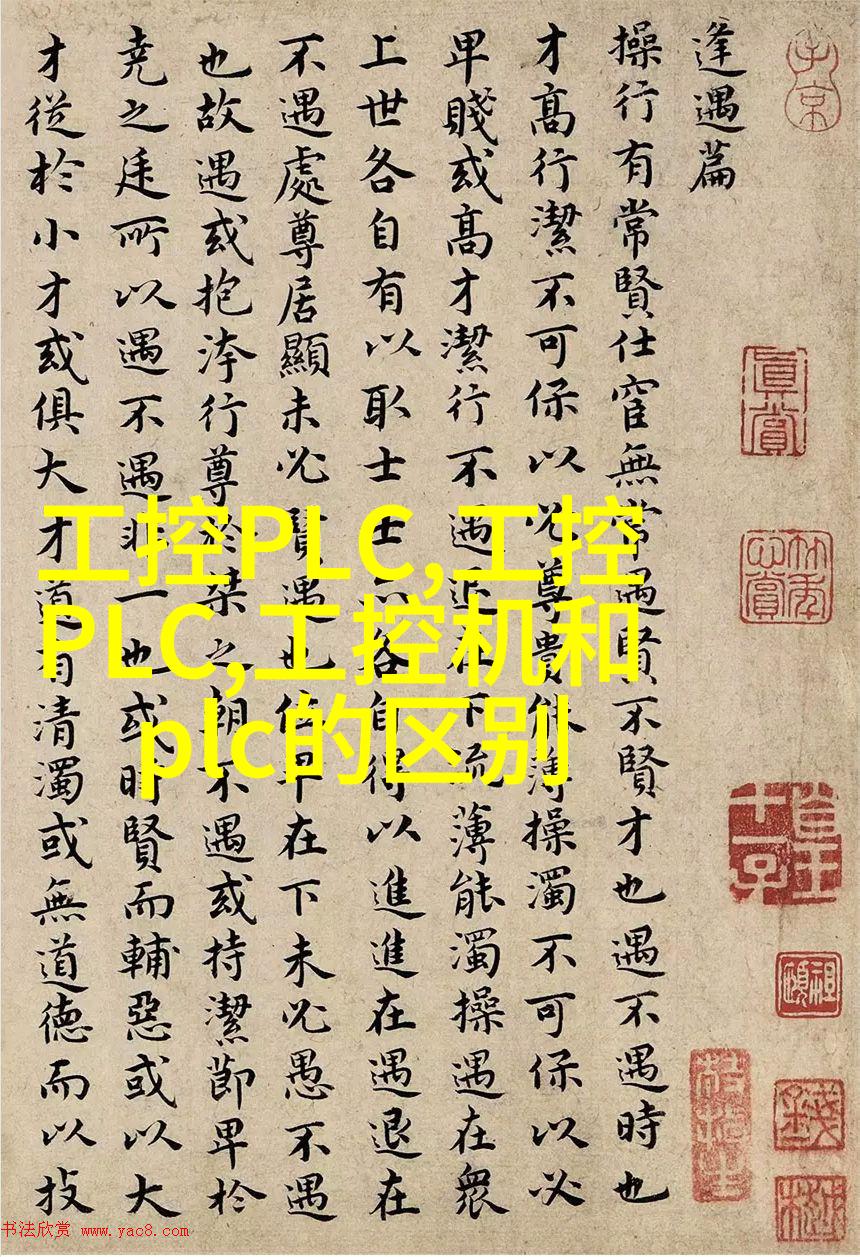 逢遇篇
操行有常賢仕宦無常遇賢不賢才也遇不遇時也
才高行潔不可保以必尊貴能薄操濁不可保以必
卑賤或高才潔行不遇退在下流薄能濁操遇在衆
上世各自有以取士士亦各自得以進進在遇退在
不遇處尊居顯未必賢遇也位卑在下未必愚不遇
也故遇或抱洿行尊於桀之朝不遇或持潔節卑於
尭之廷所以遇不遇非一也或時賢而輔惡或以大
才從於小才或俱大才道有清濁或無道德而以技
眞賞
工控PLC,工控
PLC,工控机和
plc的区别
书法欣赏 www.yac8.com